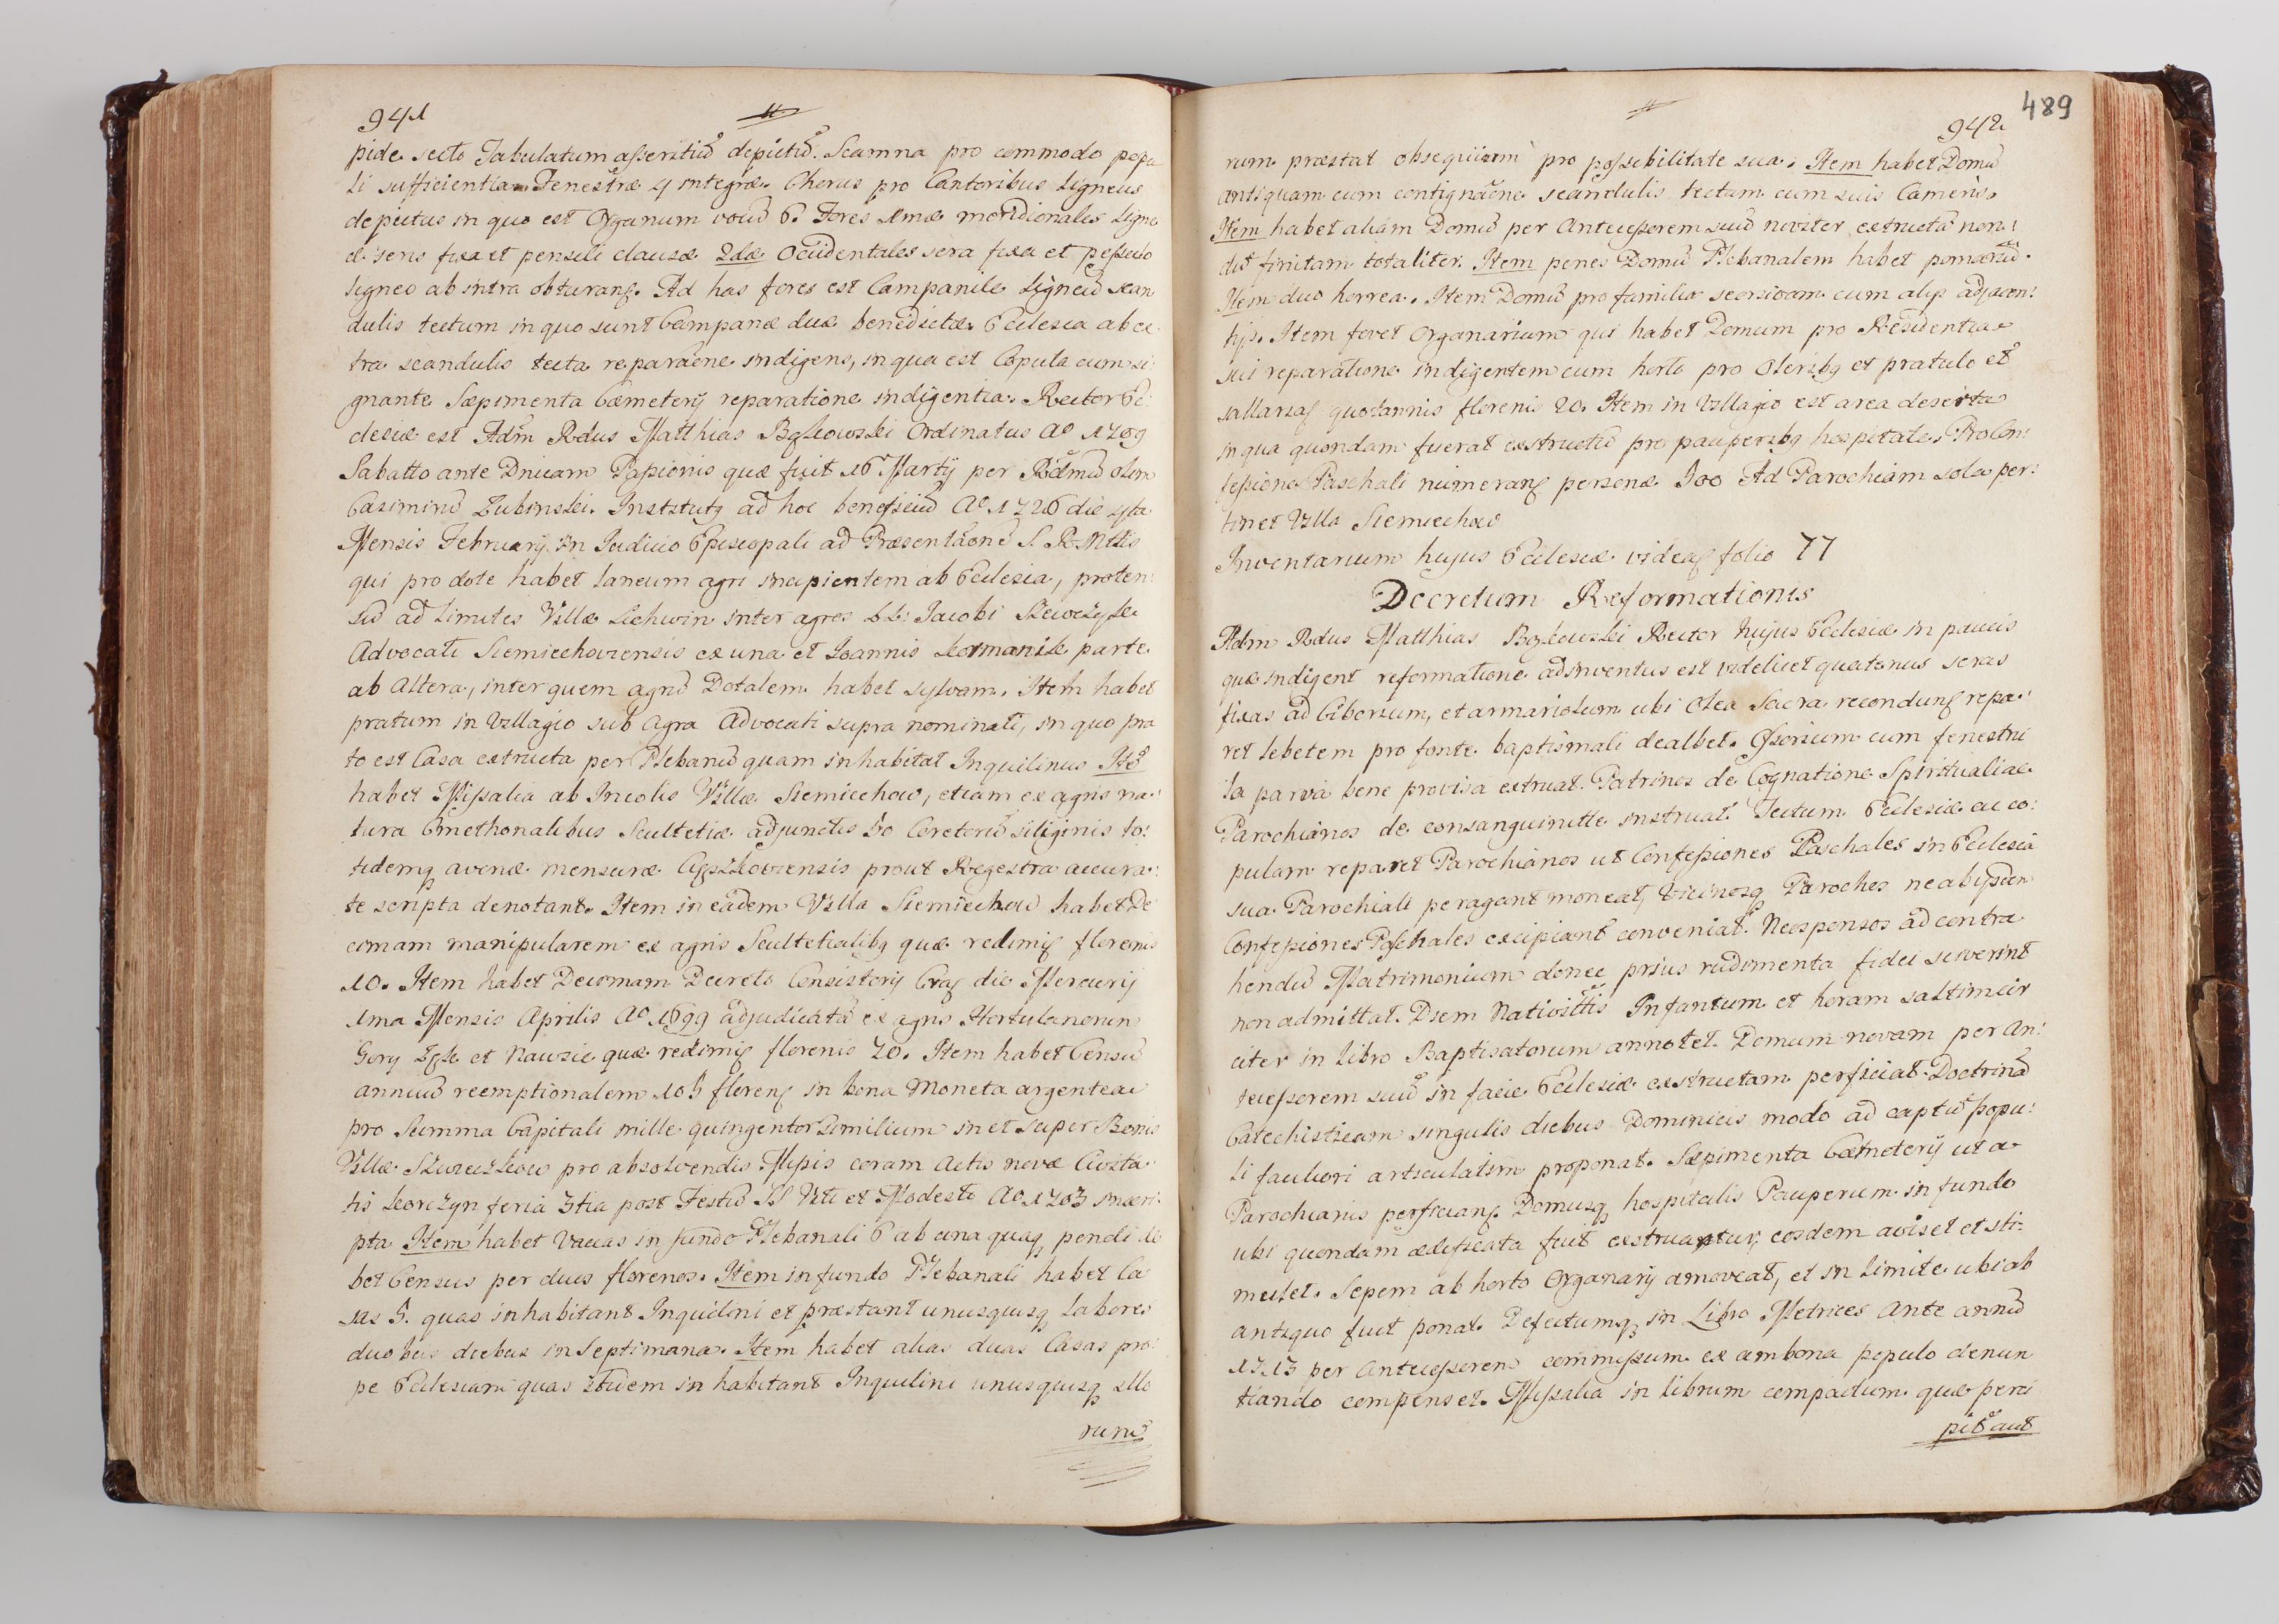 941
pide secto Tabulatum asseritiũ depictũ. Scamna pro commodo popu
li sufficientia. Fenestræ 4 integræ. Chorus pro Cantoribus Ligneus
depictus in quo est Organum vocũ 6. Fores 1mæ meridionales Ligne
æ sera fixa et pensili clausæ 2dæ Occidentales sera fixa et pessulo
ligneo ab intra obturanť. Ad has fores est Campanile Ligneũ scan
dulis tectum in quo sunt Campanæ duæ benedictæ. Ecclesia ab ex
tra scandulis tecta reparãone indigens, in qua est Copula cum si
gnante. Sæpimenta Cæmeterij reparatione indigentia. Rector Ec
clesiæ est Adm̃ Rdus Matthias Bąkowski Ordinatus Aº 1709
Sabatto ante Dnicam Passionis quæ fuit 16 Martij per Rdmũ olim
Casimirũ Łubinski. Institutq ad hoc beneficiũ Aº 1726 die 4ta
Mensis Februarij in Judicio Episcopali ad Præsentãonẽ S. R. Mttis
qui pro dote habet laneum agri incipientem ab Ecclesia, proten:
sũ ad limites Villæ Lichwin inter agros LL: Jacobi Szewczyk
Advocati Siemiechoviensis ex una et Joannis Kormanik parte
ab altera, inter quem agrũ Dotalem habet sylvam. Item habet
pratum in Villagio sub agra Advocati supra nominati, in quo pra
to est Casa extructa per Plebanũ quam inhabitat Inquilinus Itẽ
habet Missalia ab Incolis Villæ Siemiechow, etiam ex agris na:
tura Cmethonalibus Scultetiæ adjunctis 50 Coretorũ siliginis to:
tidemq avenæ mensuræ prout Regestra accura:
te scripta denotant. Item in eadem Villa Siemiechow habet De
cimam manipularem ex agris Scultetialibq quæ redimiť florenis
10. Item habet Decimam Decreto Consistorij Craç die Mercurij
1ma Mensis Aprilis Aº 1699 adjudicatã ex agris Hortulanorum
Gory et Nauzie quæ redimiť florenis 20. Item habet Censũ
annuũ reemptionalem 105 florenť in bona Moneta argentea
pro Summa Capitali mille quingentor similium in et super Bonis
Villæ pro absolvendis Missis coram Actis novæ Civita
tis Korczyn feria 3tia post Festũ SS Viti et Modesti Aº 1703 inscri
pta Item habet Vaccas in fundo Plebanali 6 ab una quaq pendi de
bet Census per duos florenos. Item in fundo Plebanali habet Ca
sas 5. quas inhabitant Inquilini et præstant unusquisq Labores
duobus diebus in Septimana. Item habet alias duas Casas pro
pe Ecclesiam quas itidem inhabitant Inquilini unusquisq illo
rum
489
942
rum præstat obsequium pro possibilitate sua. Item habet Domũ
antiquam cum contignãone scandulis tectam cum suis Cameris.
Item habet aliam Domũ per Antecessorem suũ noviter extructã non:
dũ finitam totaliter. Item penes Domũ Plebanalem habet pomariũ.
Item duo horrea. Item Domũ pro familia seorsivam cum alijs adjacen:
tijs. Item fovet Organarium qui habet Domum pro Residentia
sui reparatione indigentem cum horto pro Oleribq et pratulo et
sallariať quotannis florenis 20. Item in Villagio est area deserta
in qua quondam fuerat exstructũ pro pauperibq hospitale. Pro Con:
fessione Paschali numeranť personæ 300 Ad Parochiam sola per:
tinet Villa Siemiechow
Inventarium hujus Ecclesiæ videať folio 77
Decretum Reformationis
Adm Rdus Matthias Bąkowski Rector hujus Ecclesiæ in paucis
quæ indigent reformatione adinventus est videlicet quatenus seras
fixas ad Ciborium, et armariolum ubi Olea Sacra recondunť repa:
ret lebetem pro fonte baptismali dealbet. Ossorium cum fenestri
la parva bene provisa extruat. Patrinos de Cognatione Spirituali ac
Parochianos de consanguinitte instruat. Tectum Ecclesiæ ac co:
pulam reparet Parochianos ut Confessiones Paschales in Ecclesia
sua Parochiali peragant moneat, Vicinosq Parochos ne ab ijsdem
Confessiones Paschales excipiant conveniat. Neosponsos ad contra
hendũ Matrimonium donec prius rudimenta fidei sciverint
non admittat. Diem Nativittis Infantum et horam saltim cir
citer in libro Baptisatorum annotet. Domum novam per An:
tecessorem suũ in facie Ecclesiæ exstructam perficiat. Doctrinã
Catechisticam singulis diebus Dominicis modo ad captũ popu:
li faciliori articulatim proponat. Sæpimenta Cæmeterij ut a
Parochianis perficianť. Domusq hospitalis Pauperum in fundo
ubi quondam ædificata fuit exstruatur, eosdem aviset et sti:
mulet. Sepem ab horto Organarij amoveat, et in limite ubi ab
antiquo fuit ponat. Defectumq in Libro Metrices ante annũ
1713 per Antecessorem commissum ex ambona populo denun
tiando compenset. Missalia in librum compactum quæ perci
pit aut